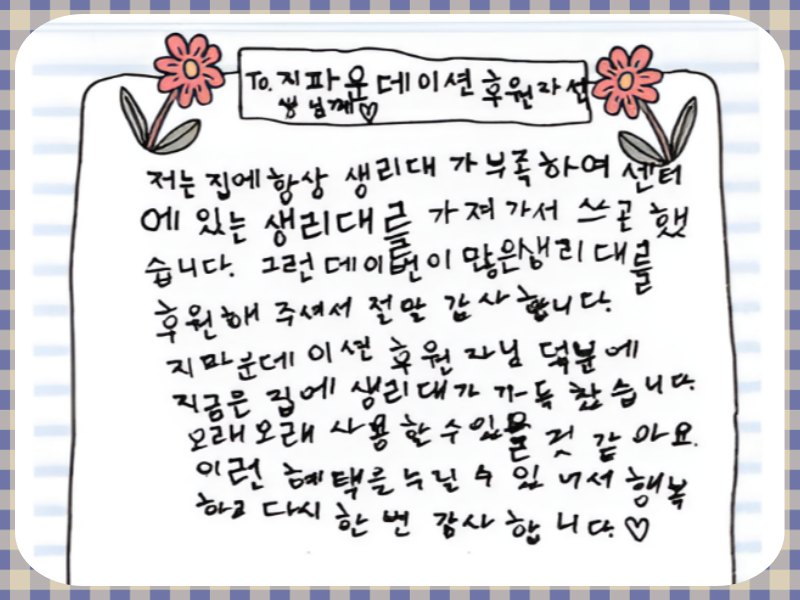 To. 지파운데이션 후원자선
생님께♡
저는 집에 항상 생리대가 부족하여 센터
에 있는 생리대를 가져가서 쓰곤 했
습니다. 그런데 이번이 많은 생리대를
후원해 주셔서 절말 감사합니다.
지마운데이션 후원자님 덕분에
지금은 집에 생리대가 가득 찼습니다.
오래오래 사용할 수 있을 것 같아요.
이런 혜택를 누릴 수 있너서 행복
하고 다시 한 번 감사합니다.♡